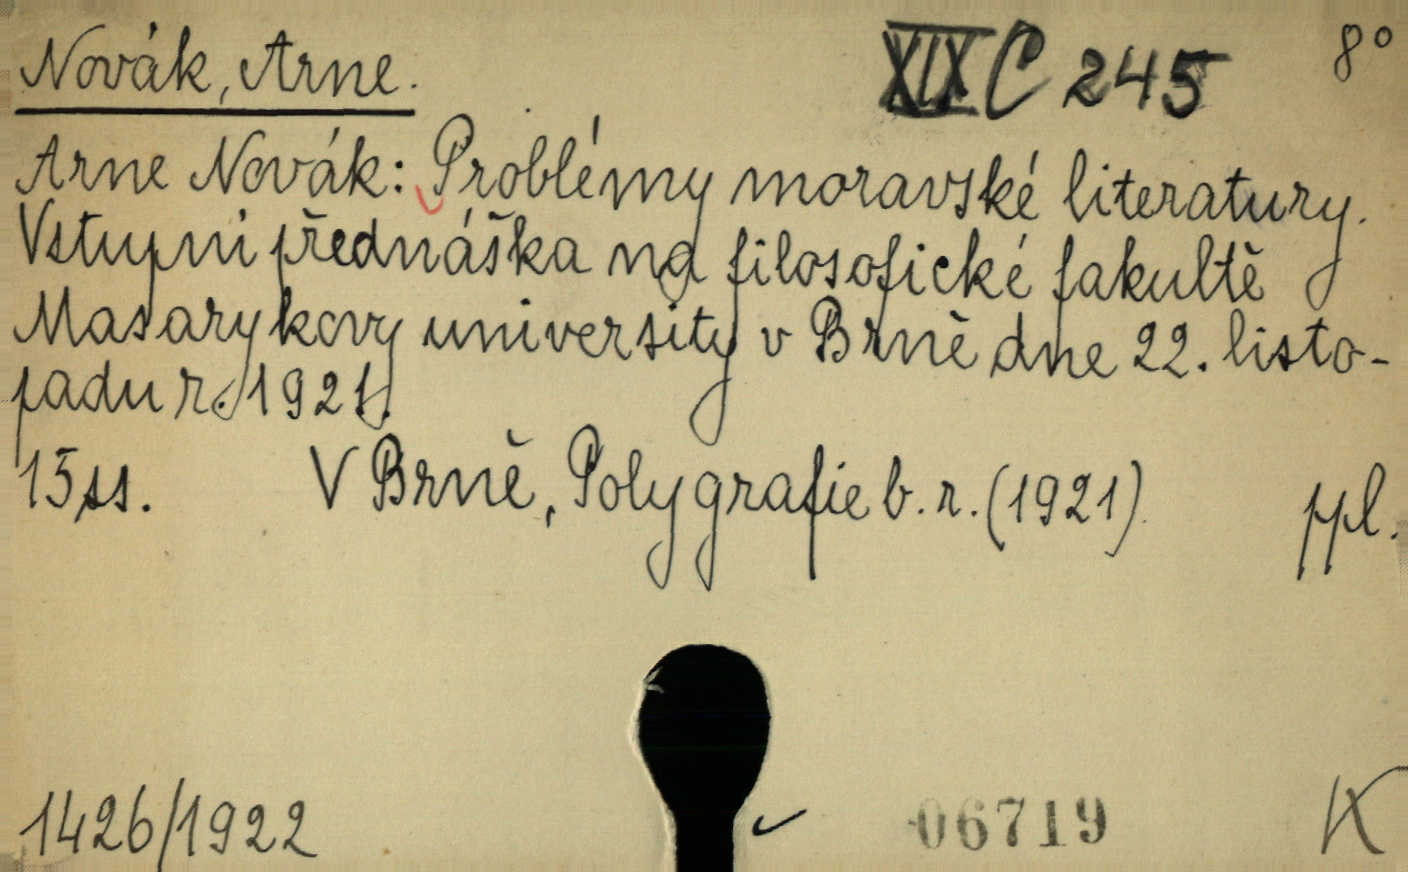 Novák, Arne. XIX C 245 8°
Arne Novák: Problémy moravské literatury.
Vstupni přednáška na filosofické fakultě
Masarykovy university v Brně dne 22. listo-
padu r. 1921.
15 ss. V Brně, Polygrafie b. r. (1921). ppl.
1426/1922 06719 K